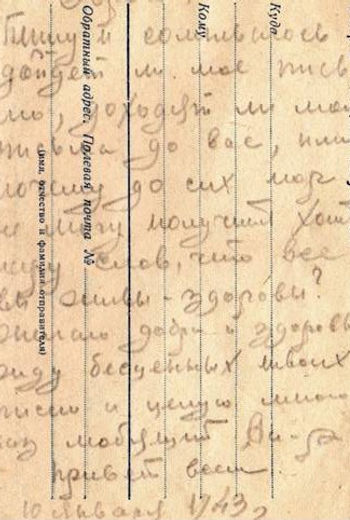 Куда
Кому
Обратный адрес. Полевая почта №
(имя, отчество и фамилия отправителя)
Пишу и сомневаюсь
дойдет ли мое пись
мо, доходят ли мои
письма до вас, или
почему до сих пор
не могу получить хоть
пару слов, что все
вы живы - здоровы?
Желаю добра и здоровья
жду бесценных твоих
писем и целую много
раз любящий
привет всем
10 января 1943